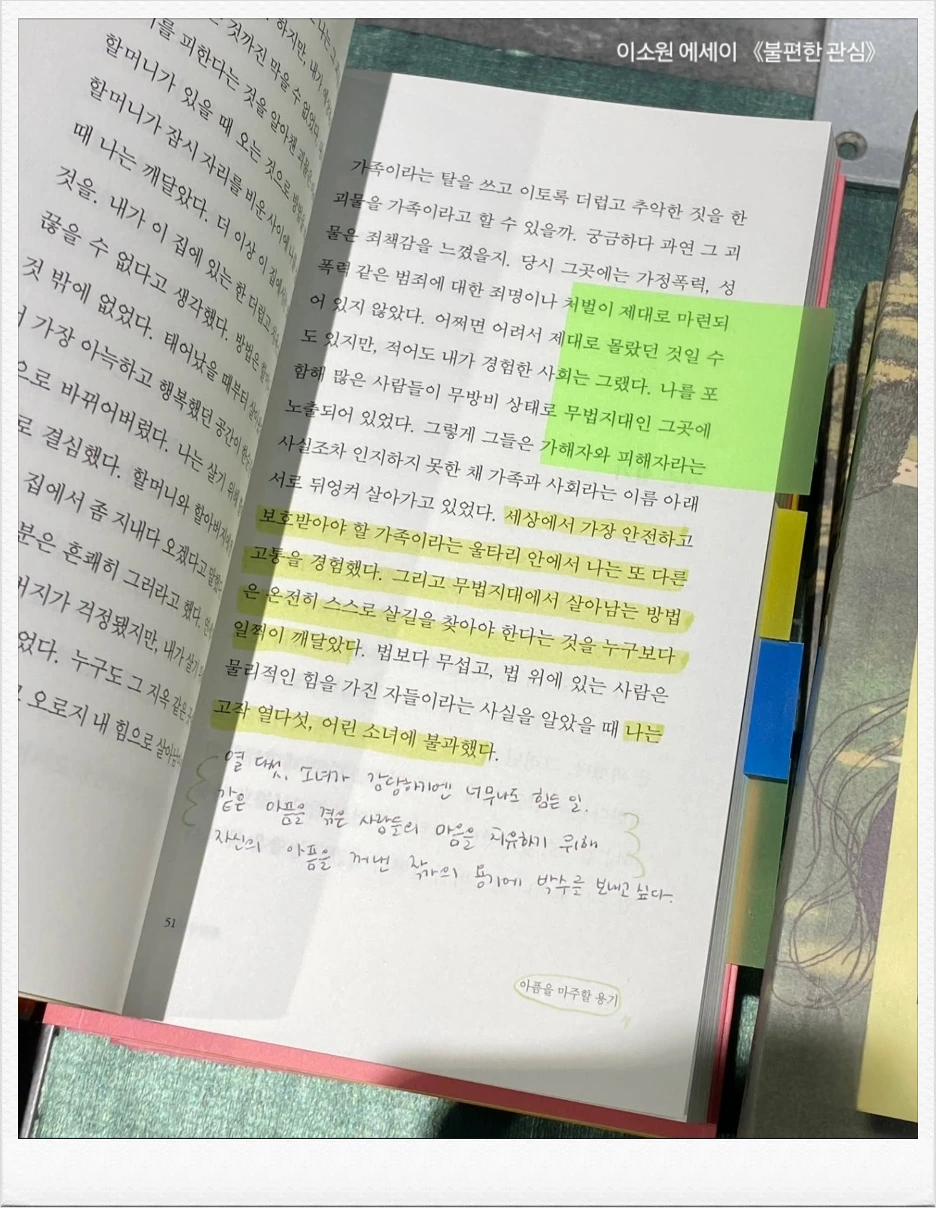 이소원 에세이 《불편한 관심》
하지만, 내가
것까진 막을 수 없었다.
를 피한다는 것을 알아챈
할머니가 있을 때 오는 것으로
할머니가 잠시 자리를 비운 사이에
때 나는 깨달았다. 더 이상 이 집에
것을. 내가 이 집에 있는 한 더럽고
끊을 수 없다고 생각했다. 방법은
것 밖에 없었다. 태어났을 때부터
가장 아늑하고 행복했던 공간이
으로 바뀌어버렸다. 나는 살기 위해
로 결심했다. 할머니와 할아버지에게
집에서 좀 지내다 오겠다고 말했
분은 흔쾌히 그러라고 했다.
버지가 걱정됐지만, 내가 살기
었다. 누구도 그 지옥 같은
오로지 내 힘으로 살아남
51
가족이라는 탈을 쓰고 이토록 더럽고 추악한 짓을 한
괴물을 가족이라고 할 수 있을까. 궁금하다 과연 그 괴
물은 죄책감을 느꼈을지. 당시 그곳에는 가정폭력, 성
폭력 같은 범죄에 대한 죄명이나 처벌이 제대로 마련되
어 있지 않았다. 어쩌면 어려서 제대로 몰랐던 것일 수
도 있지만, 적어도 내가 경험한 사회는 그랬다. 나를 포
함해 많은 사람들이 무방비 상태로 무법지대인 그곳에
노출되어 있었다. 그렇게 그들은 가해자와 피해자라는
사실조차 인지하지 못한 채 가족과 사회라는 이름 아래
서로 뒤엉켜 살아가고 있었다. 세상에서 가장 안전하고
보호받아야 할 가족이라는 울타리 안에서 나는 또 다른
고통을 경험했다. 그리고 무법지대에서 살아남는 방법
은 온전히 스스로 살길을 찾아야 한다는 것을 누구보다
일찍이 깨달았다. 법보다 무섭고, 법 위에 있는 사람은
물리적인 힘을 가진 자들이라는 사실을 알았을 때 나는
고작 열다섯, 어린 소녀에 불과했다.
열 다섯, 소녀가 감당하기엔 너무나도 힘든 일.
같은 아픔을 겪은 사람들의 마음을 치유하기 위해
자신의 아픔을 꺼낸 작가의 용기에 박수를 보내고 싶다.
아픔을 마주할 용기